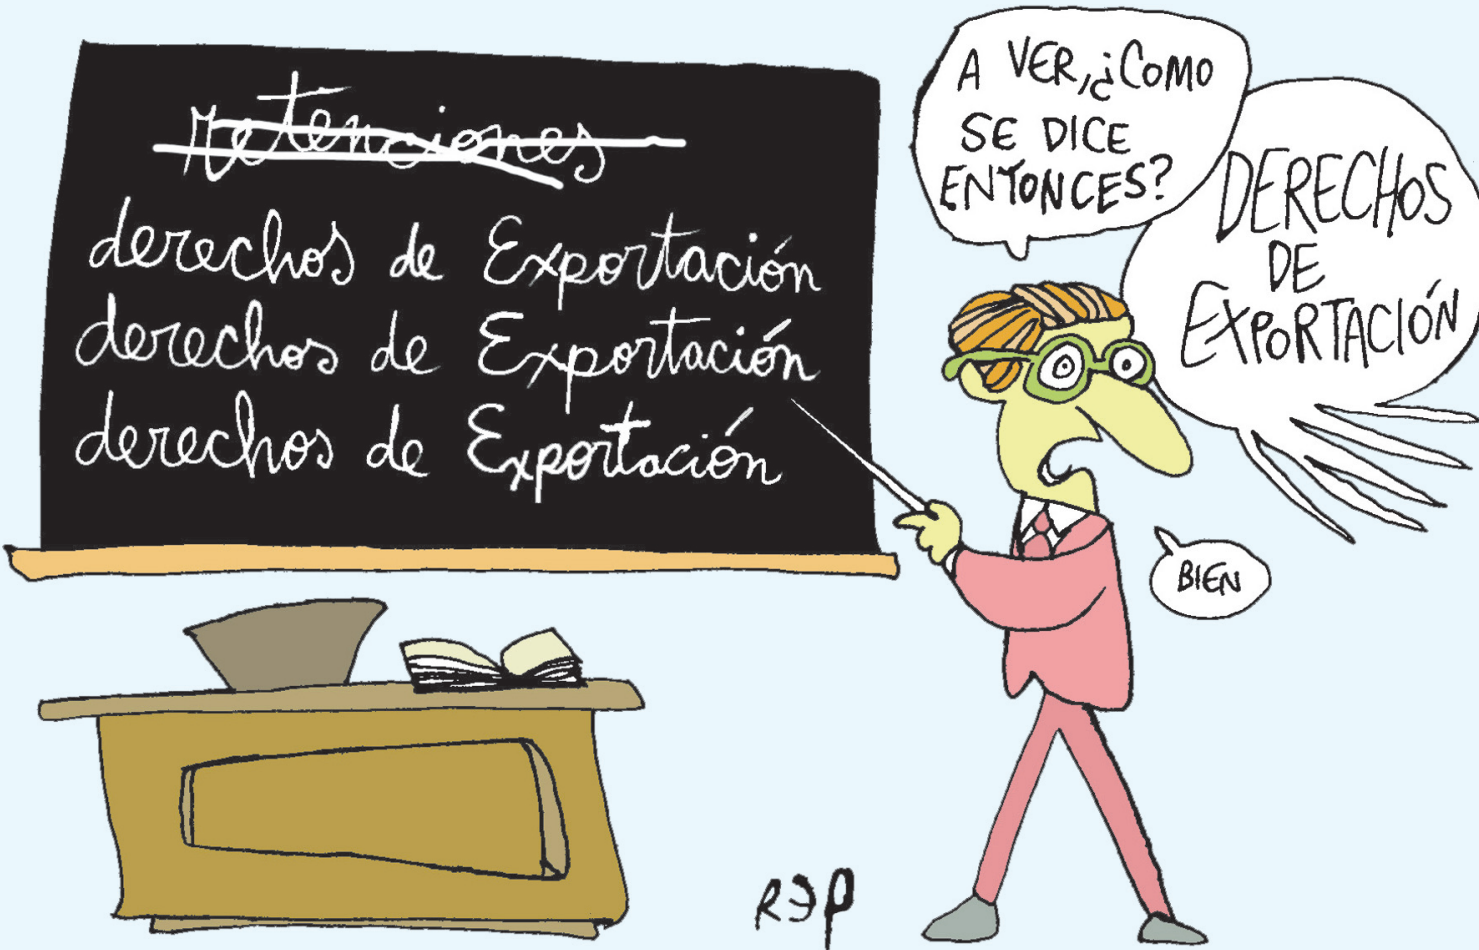 retenciones
derechos de Exportación
derechos de Exportación
derechos de Exportación
A VER, ¿COMO
SE DICE
ENTONCES?
DERECHOS
DE
EXPORTACIÓN
BIEN
REP